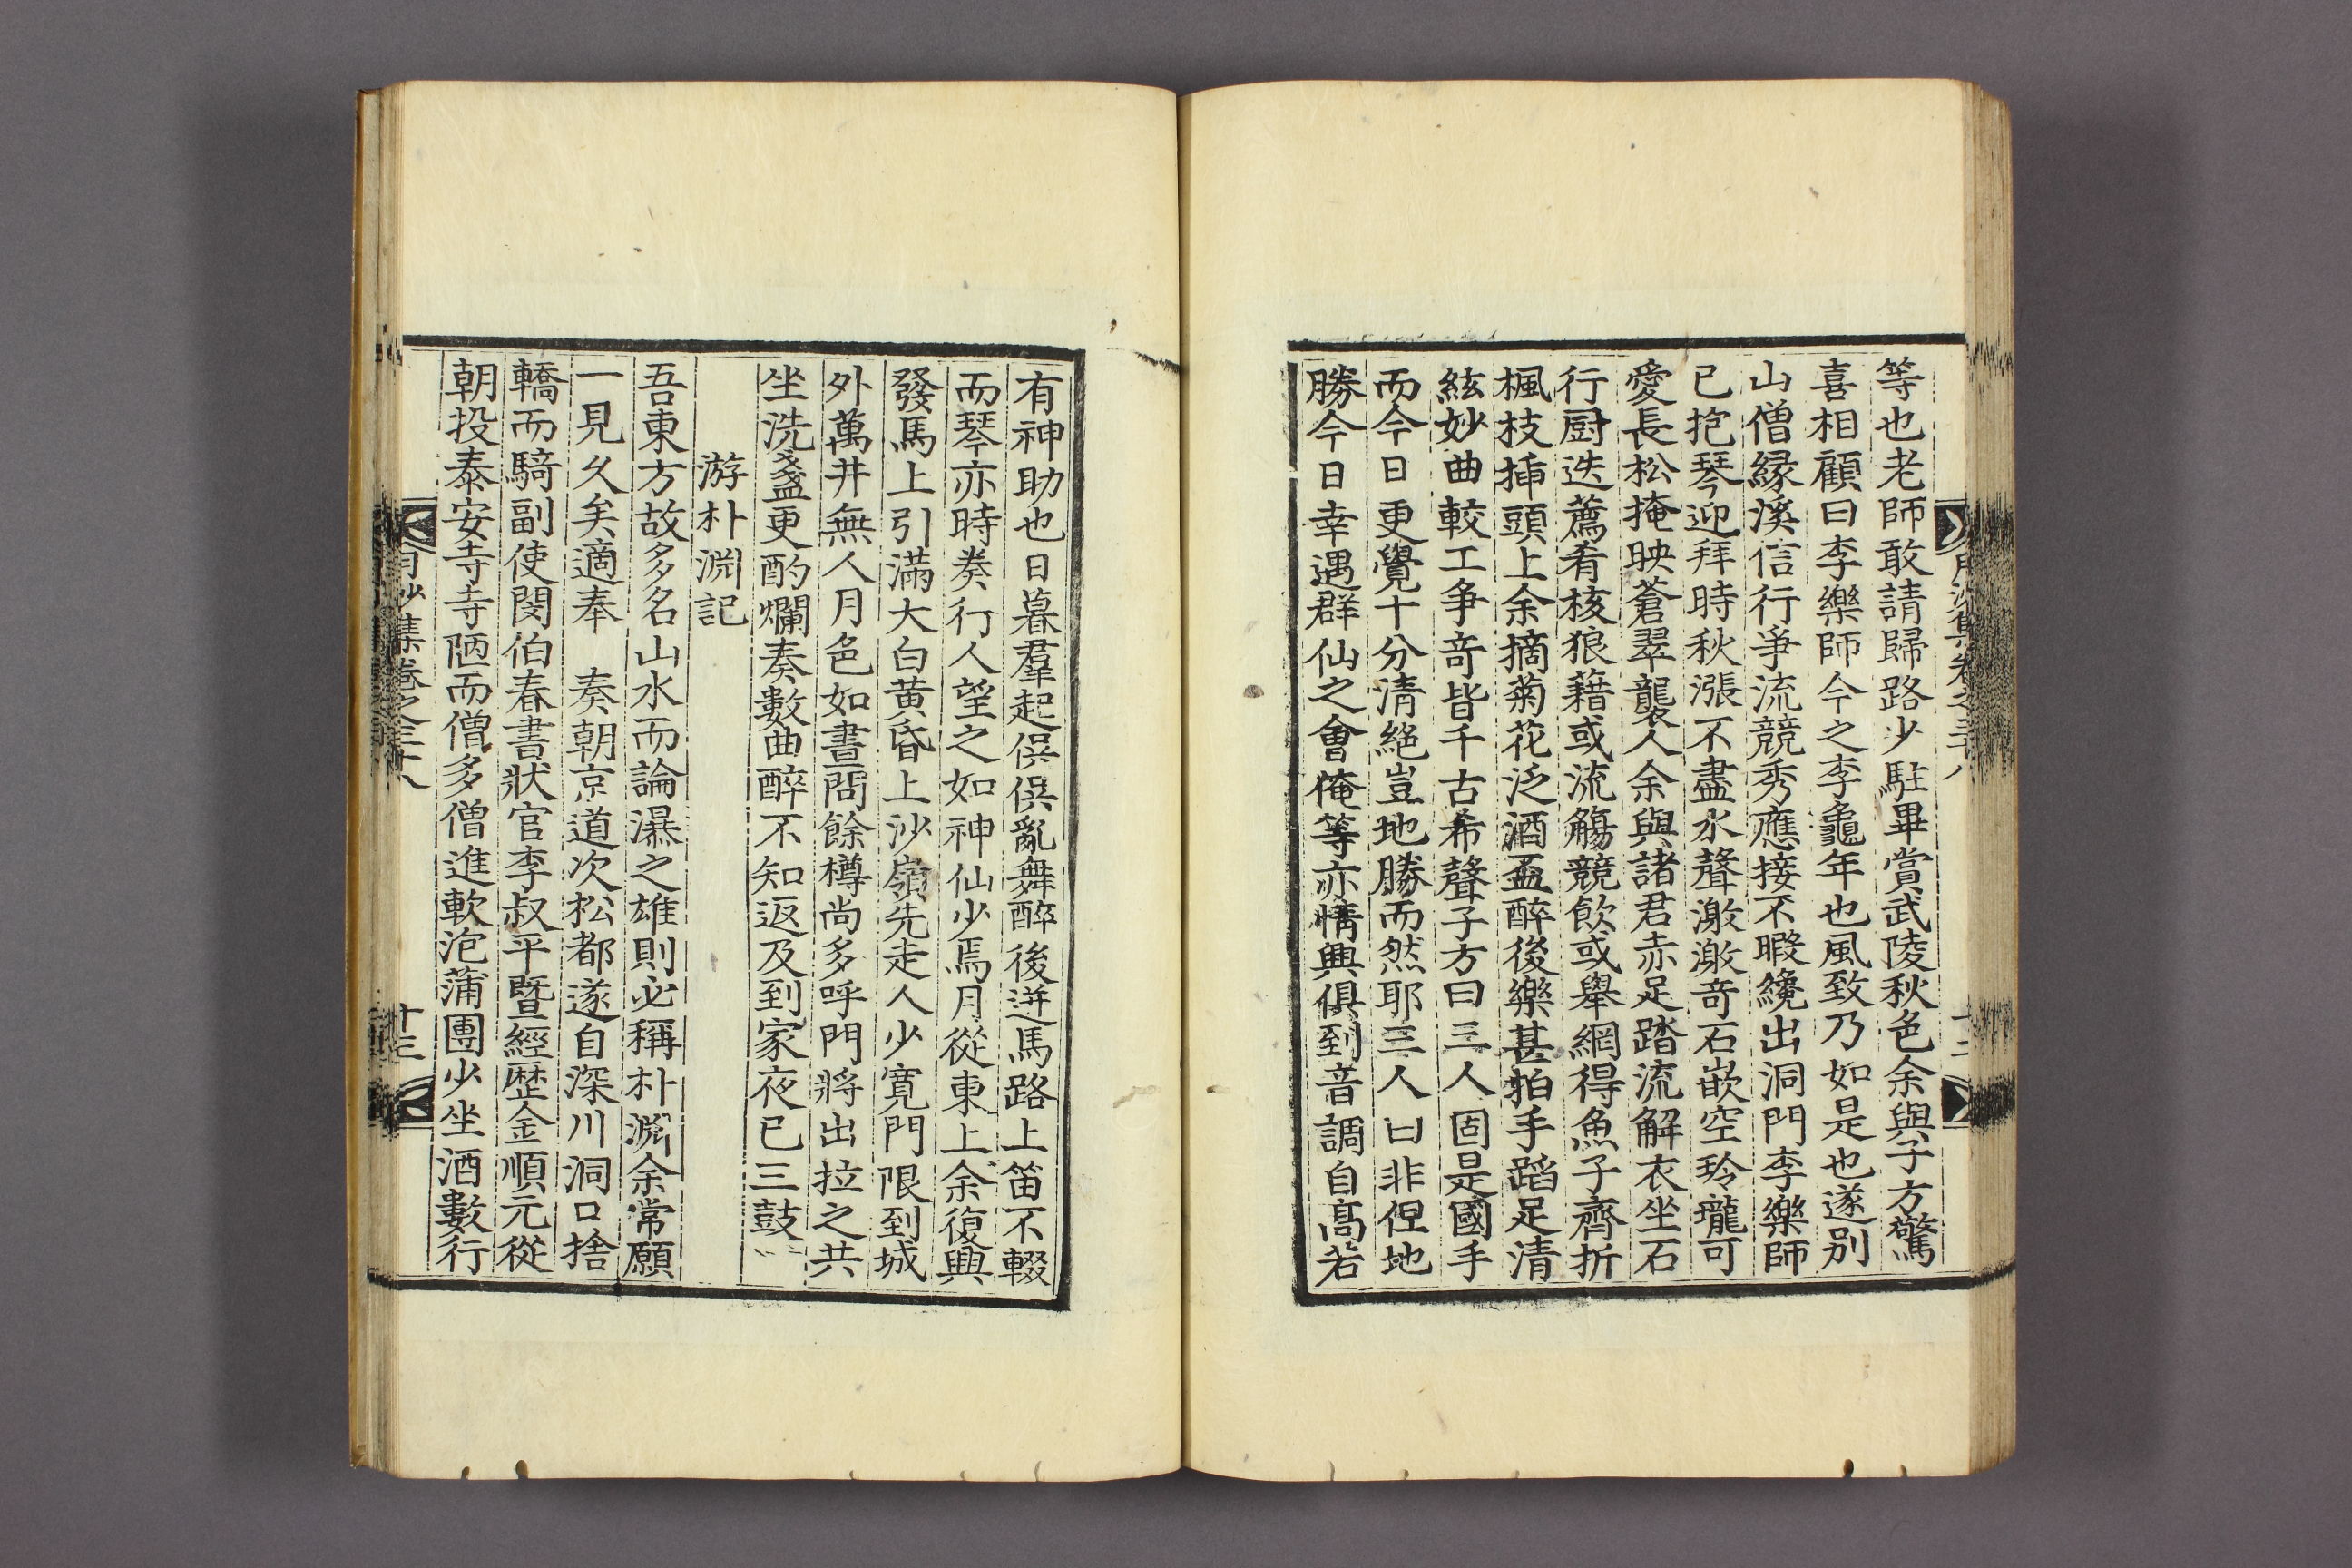 月沙集卷之三十八
十二
等也老師敢請歸路少駐畢賞武陵秋色余與子方驚
喜相顧曰李樂師今之李龜年也風致乃如是也遂別
山僧緣溪信行爭流競秀應接不暇纔出洞門李樂師
已抱琴迎拜時秋漲不盡水聲激激奇石嵌空玲瓏可
愛長松掩映蒼翠襲人余與諸君赤足踏流解衣坐石
行厨迭薦肴核狼藉或流觴競飮或擧網得魚子齊折
楓枝揷頭上余摘菊花泛酒盃醉後樂甚拍手蹈足清
絃妙曲較工争奇皆千古希聲子方曰三人固是國手
而今日更覺十分清絕豈地勝而然耶三人曰非但地
勝今日幸遇群仙之會俺等亦情興俱到音調自高若
有神助也日暮羣起俣俣亂舞醉後迸馬路上笛不輟
而琴亦時奏行人望之如神仙少焉月從東上余復興
發馬上引滿大白黄昏上沙嶺先走人少寬門限到城
外萬井無人月色如晝問餘樽尚多呼門將出拉之共
坐洗盞更酌爛奏數曲醉不知返及到家夜已三鼓
游朴淵記
吾東方故多名山水而論瀑之雄則必稱朴淵余常願
一見久矣適奉　奏朝京道次松都遂自深川洞口捨
轎而騎副使閔伯春書狀官李叔平曁經歷金順元從
朝投泰安寺寺陋而僧多僧進軟泡蒲團少坐酒數行
月沙集卷之三十八
十三